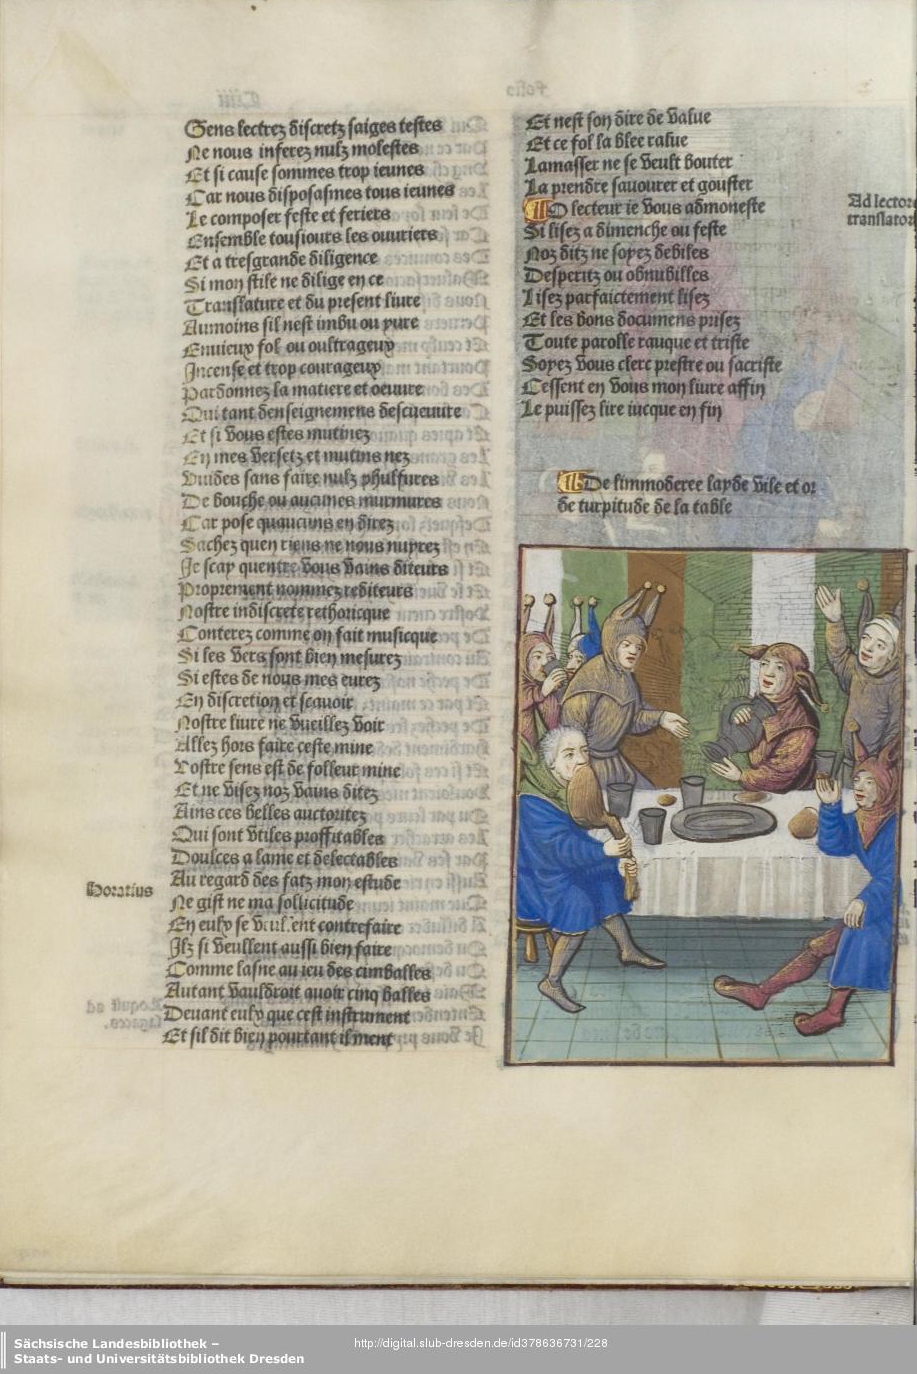 Gens lectrez discretz saiges testes
Ne nous inferez nulz molestes
Et si cause sommes trop ieunes
Car nous disposasmes tous ieunes
Le composer feste et feriers
Ensemble tousiours les ouuriers
Et a tresgrande diligence
Si mon stile ne dilige en ce
Translature et du present liure
Aumoins sil nest imbu ou yure
Enuieux fol ou oultrageux
Incense et trop courageux
Pardonnez la matiere et oeuure
Qui tant denseignemens descueuure
Et si vous estes mutinez
En mes versetz et mutins nez
Vuides sans faire nulz phulfures
De bouche ou aucunes murmures
Car pose quaucuns en direz
Sachez quen riens ne nous nuyrez
Je scay quentre vous vains diteurs
Proprement nommez rediteurs
Nostre indiscrete rethoricque
Conterez comme on fait musicque
Si les vers sont bien mesurez
Si estes de nous mes eurez
En discretion et scauoir
Nostre liure ne vueillez voir
Allez hors faire ceste mine
Vostre sens est de folleur mine
Et ne visez noz vains ditez
Ains ces belles auctoritez
Qui sont vtiles proffitables
Doulces a lame et delectables
Au regard des fatz mon estude
Horatius
Ne gist ne ma sollicitude
En eulx se veullent contrefaire
Ilz si veullent aussi bien faire
Comme lasne au ieu des cimballes
Autant vauldroit quoir cinq balles
Deuant eulx que cest instrument
Et sil dit bien pourtant il ment
Et nest son dire de value
Et ce fol la blee ralue
Lamasser ne se veult bouter
La prendre sauourer et gouster
Ad lectore
translator
O lecteur ie vous admoneste
Si lisez a dimenche ou feste
Noz ditz ne soyez debiles
Desperitz ou obnubilles
Lisez parfaictement lisez
Et les bons documens prisez
Toute parolle rauque et triste
Soyez vous clerc prestre ou sacriste
Cessent en vous mon liure affin
Le puissez lire iucque en fin
De limmoderee layde vile et or
de turpitude de la table
Sächsische Landesbibliothek –
Staats- und Universitätsbibliothek Dresden
http://digital.slub-dresden.de/id378636731/228